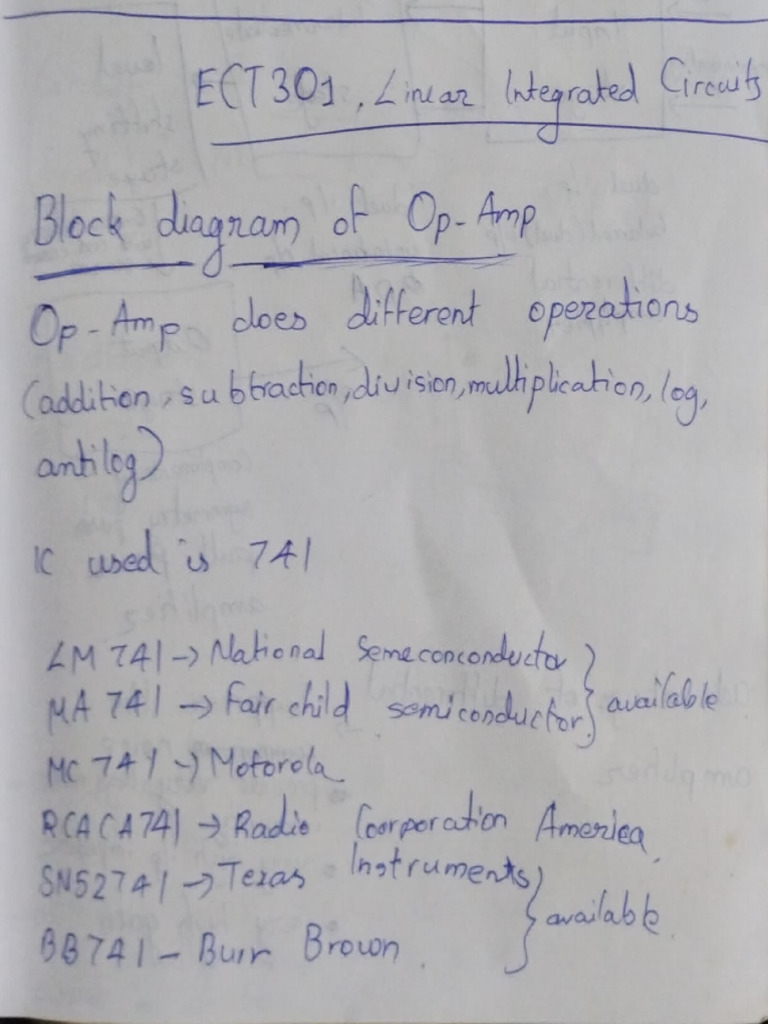 ECT301, Linear Integrated Circuits
Block diagram of Op-Amp
Op-Amp does different operations
(addition, subtraction, division, multiplication, log,
antilog)
IC used is 741
LM 741 → National Semeconconductor } available
μA 741 → Fair child semiconductor
MC 741 → Motorola
RCA CA741 → Radio Coorporation America
SN52741 → Texas Instruments } available
BB741 - Burr Brown